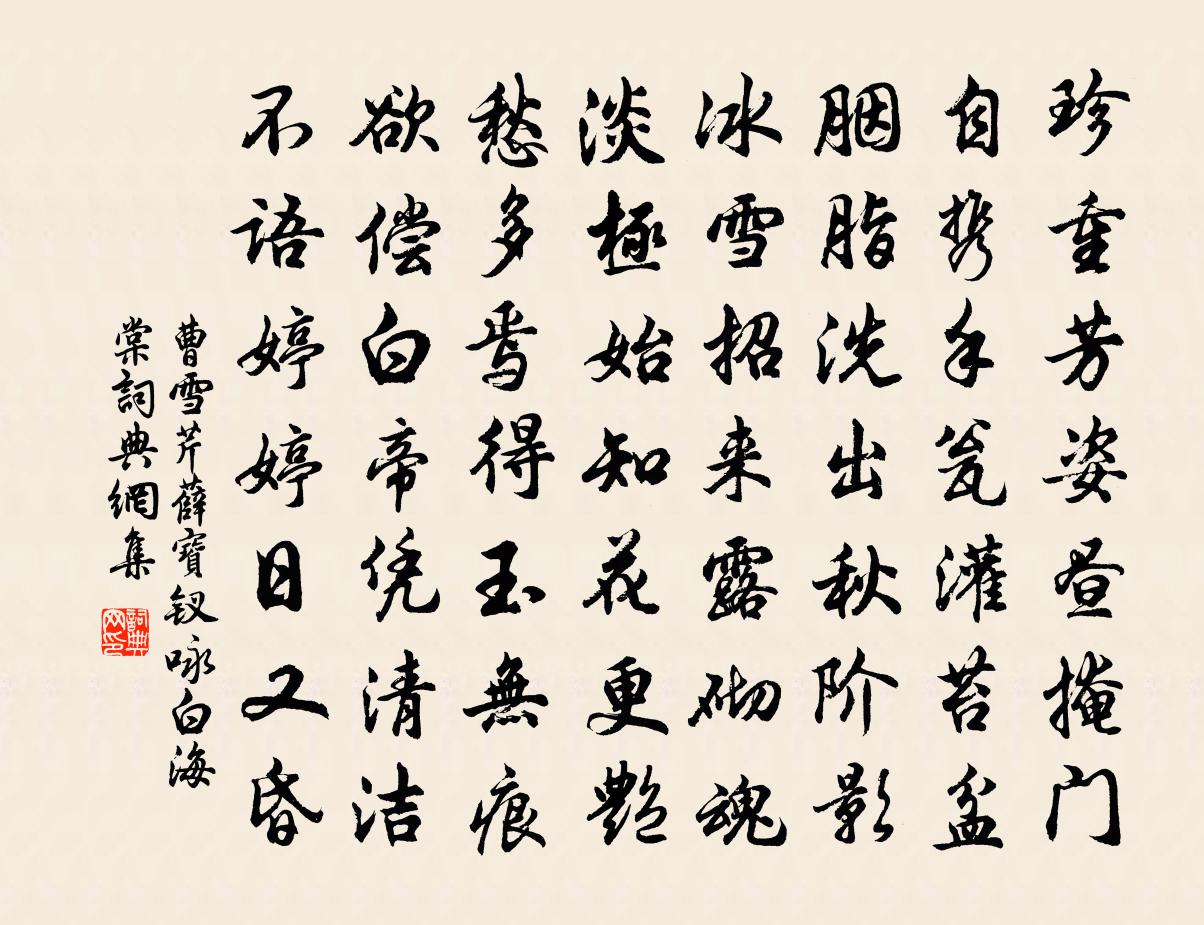 珍重芳姿昼掩门
自携手瓮灌苔盆
胭脂洗出秋阶影
冰雪招来露砌魂
淡極始知花更艷
愁多焉得玉無痕
欲偿白帝凭清洁
不語婷婷日又昏
曹雪芹薛寶钗咏白海
棠詞典網集
詞典
网印